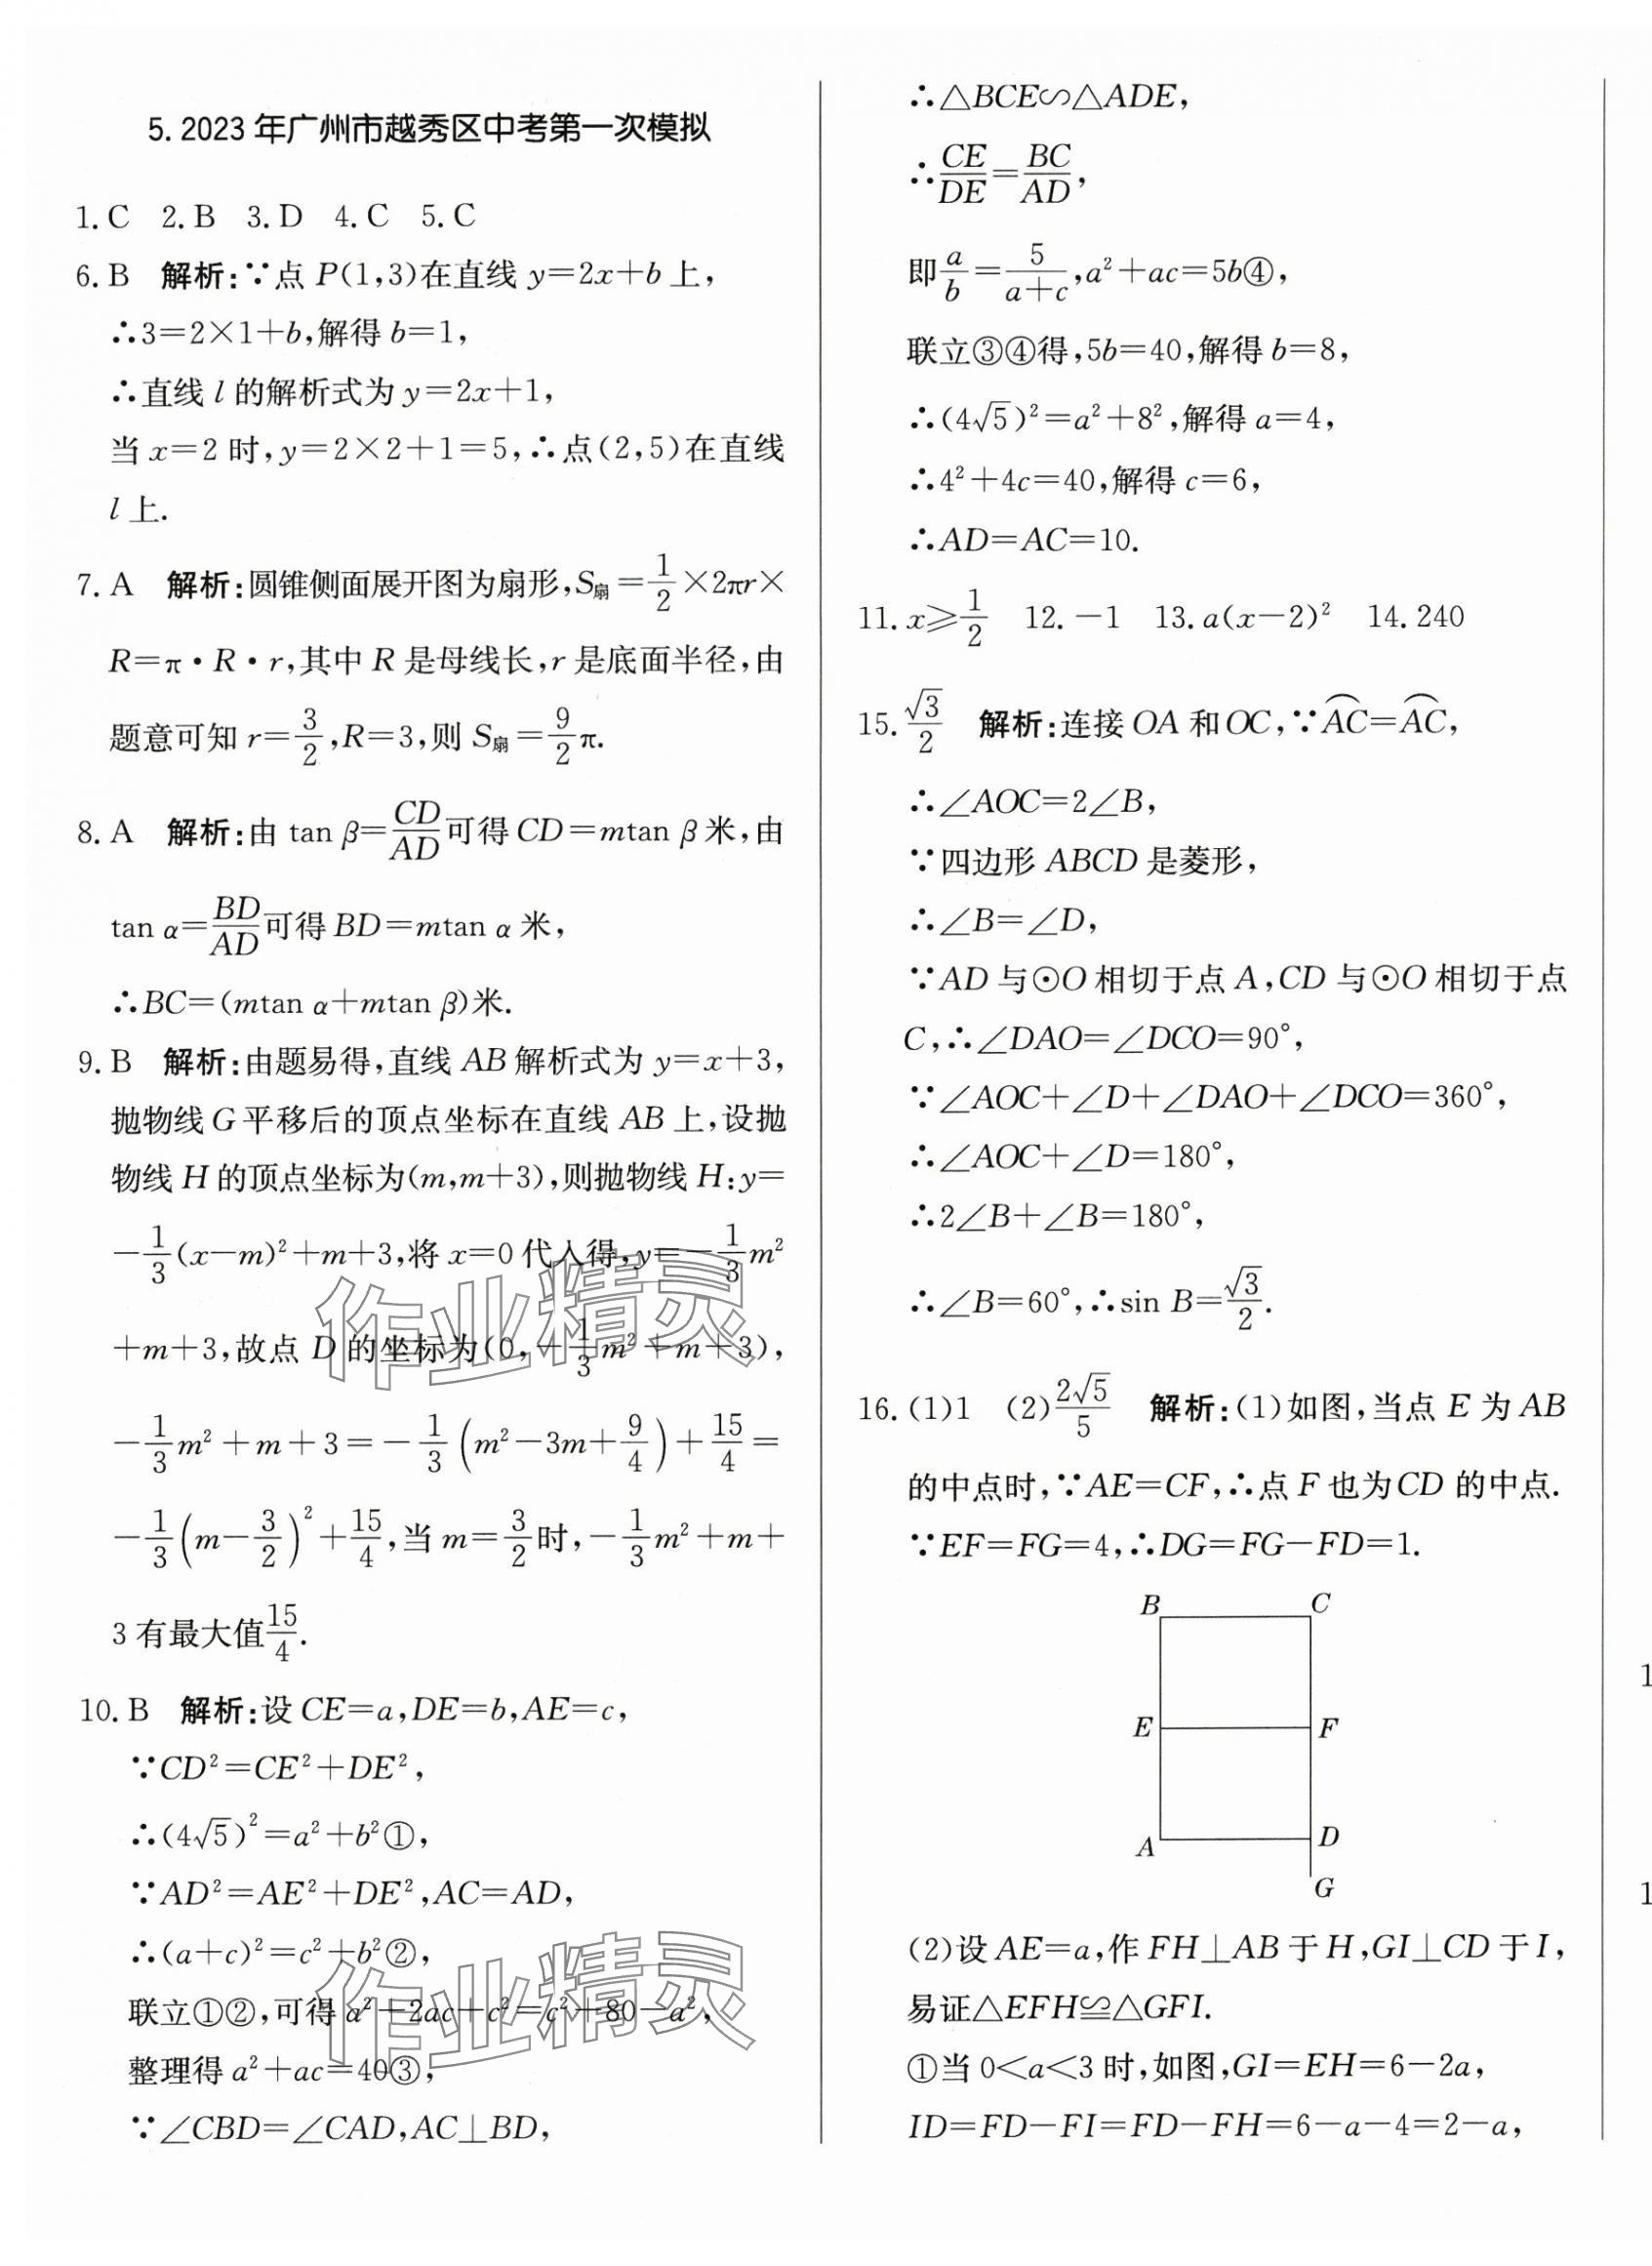 5. 2023 年广州市越秀区中考第一次模拟
1. C 2. B 3. D 4. C 5. C
6. B 解析:∵点 P(1,3)在直线 y=2x+b 上,
∴3=2×1+b,解得 b=1,
∴直线 l 的解析式为 y=2x+1,
当 x=2 时,y=2×2+1=5,∴点(2,5)在直线
l 上.
7. A 解析:圆锥侧面展开图为扇形,S扇=1/2×2πr×
R=π·R·r,其中 R 是母线长,r 是底面半径,由
题意可知 r=3/2,R=3,则 S扇=9/2π.
8. A 解析:由 tan β=CD/AD可得 CD=mtan β 米,由
tan α=BD/AD可得 BD=mtan α 米,
∴BC=(mtan α+mtan β)米.
9. B 解析:由题易得,直线 AB 解析式为 y=x+3,
抛物线 G 平移后的顶点坐标在直线 AB 上,设抛
物线 H 的顶点坐标为(m,m+3),则抛物线 H:y=
-1/3(x-m)²+m+3,将 x=0 代入得,y=-1/3m²
+m+3,故点 D 的坐标为(0,-1/3m²+m+3),
-1/3m²+m+3=-1/3(m²-3m+9/4)+15/4=
-1/3(m-3/2)²+15/4,当 m=3/2时,-1/3m²+m+
3 有最大值15/4.
10. B 解析:设 CE=a,DE=b,AE=c,
∵CD²=CE²+DE²,
∴(4√5)²=a²+b²①,
∵AD²=AE²+DE²,AC=AD,
∴(a+c)²=c²+b²②,
联立①②,可得 a²+2ac+c²=c²+80-a²,
整理得 a²+ac=40③,
∵∠CBD=∠CAD,AC⊥BD,
∴△BCE∽△ADE,
∴CE/DE=BC/AD,
即a/b=5/(a+c),a²+ac=5b④,
联立③④得,5b=40,解得 b=8,
∴(4√5)²=a²+8²,解得 a=4,
∴4²+4c=40,解得 c=6,
∴AD=AC=10.
11. x≥1/2 12. -1 13. a(x-2)² 14. 240
15. √3/2 解析:连接 OA 和 OC,∵⌒AC=⌒AC,
∴∠AOC=2∠B,
∵四边形 ABCD 是菱形,
∴∠B=∠D,
∵AD 与⊙O 相切于点 A,CD 与⊙O 相切于点
C,∴∠DAO=∠DCO=90°,
∵∠AOC+∠D+∠DAO+∠DCO=360°,
∴∠AOC+∠D=180°,
∴2∠B+∠B=180°,
∴∠B=60°,∴sin B=√3/2.
16. (1)1 (2)2√5/5 解析:(1)如图,当点 E 为 AB
的中点时,∵AE=CF,∴点 F 也为 CD 的中点.
∵EF=FG=4,∴DG=FG-FD=1.
B C
E F
A D
G
(2)设 AE=a,作 FH⊥AB 于 H,GI⊥CD 于 I,
易证△EFH≌△GFI.
①当 0<a<3 时,如图,GI=EH=6-2a,
ID=FD-FI=FD-FH=6-a-4=2-a,
1
1
作业精灵
作业精灵